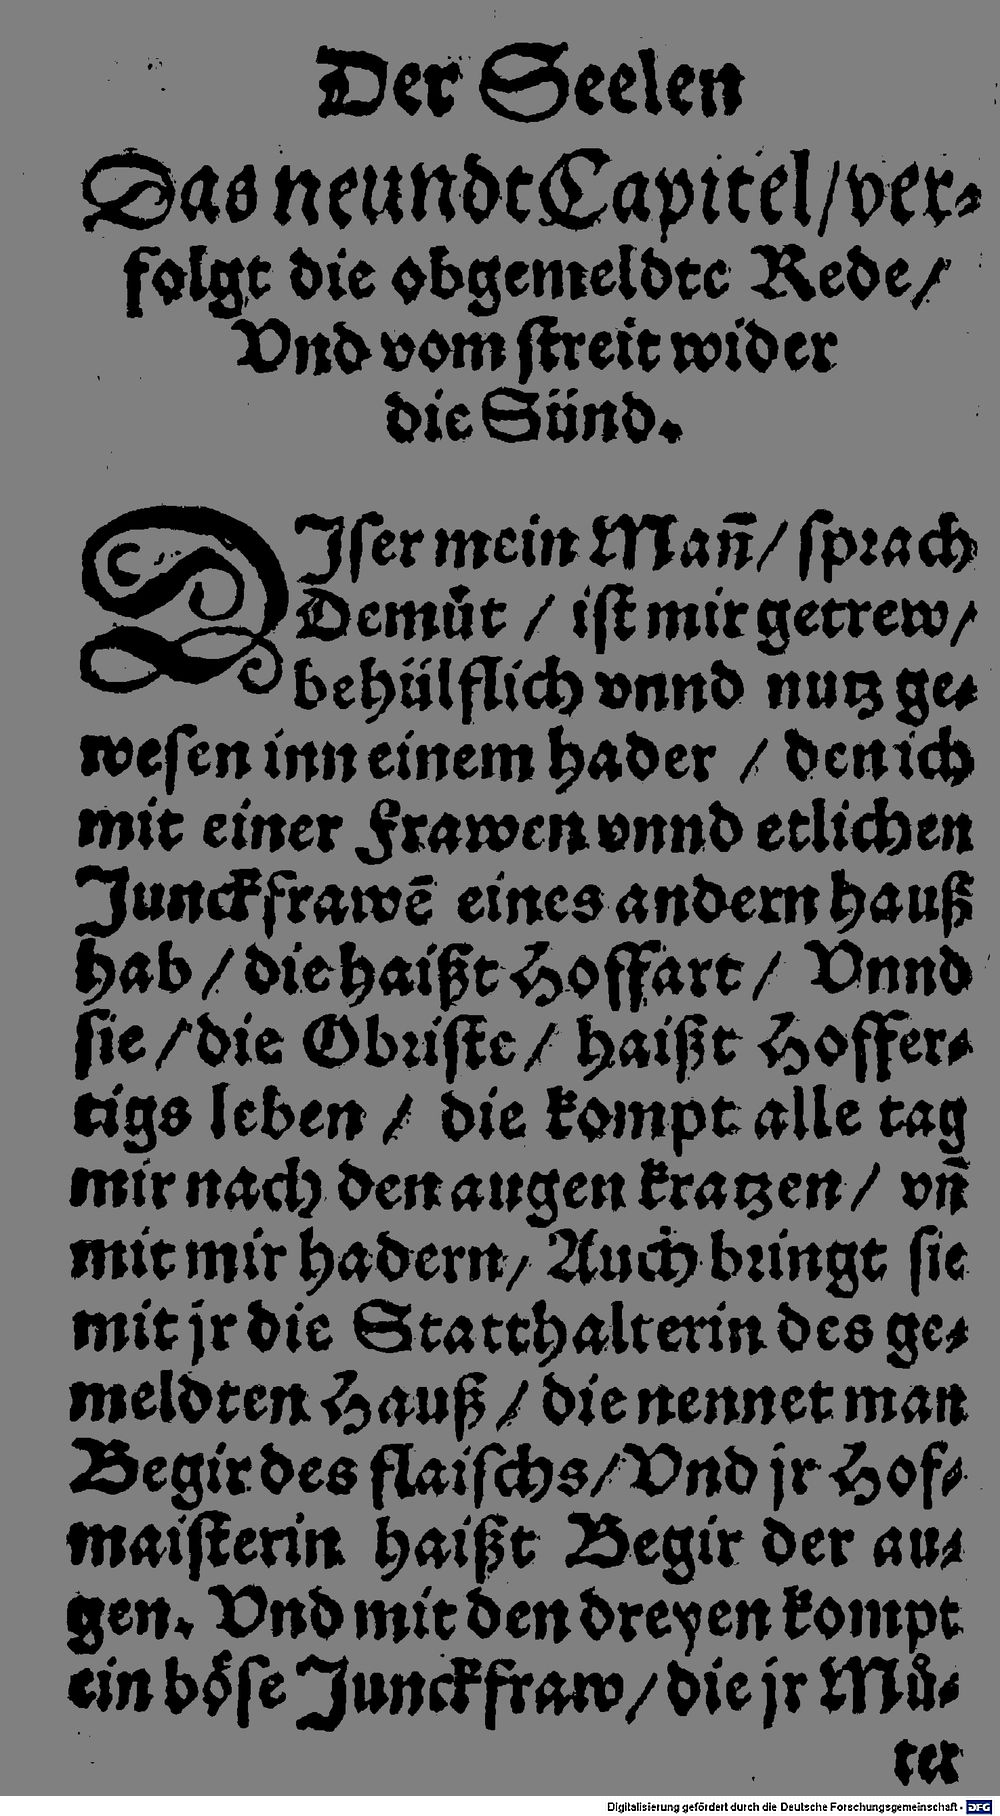 Der Seelen
Das neundt Capitel/ ver⸗
folgt die obgemeldte Rede/
Vnd vom streit wider
die Sünd.
DJser mein Mañ/ sprach
Demůt / ist mir getrew/
behülflich vnnd nutz ge⸗
wesen inn einem hader / den ich
mit einer Frawen vnnd etlichen
Junckfrawē eines andern hauß
hab / die haißt Hoffart / Vnnd
sie / die Obriste / haißt Hoffer⸗
tigs leben / die kompt alle tag
mir nach den augen kratzen / vñ
mit mir hadern/ Auch bringt sie
mit jr die Statthalterin des ge⸗
meldten Hauß / die nennet man
Begir des flaischs/ Vnd jr Hof⸗
maisterin haißt Begir der au⸗
gen. Vnd mit den dreyen kompt
ein böse Junckfraw/ die jr Můͦ⸗
ter
Digitalisierung gefördert durch die Deutsche Forschungsgemeinschaft - DFG